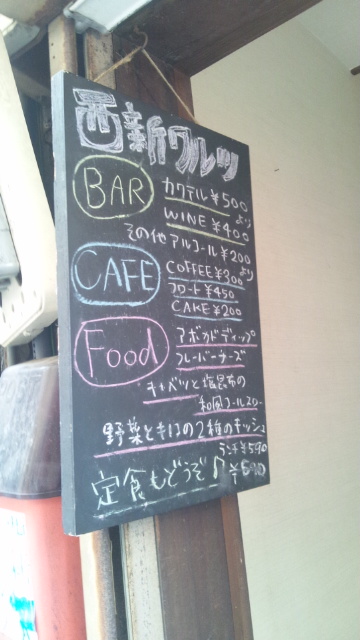 西新ワルツ
BAR
カクテル¥500
より
WINE ¥400
その他アルコール¥200
より
CAFE
COFFEE¥300
フロート¥450
CAKE¥200
Food
アボカドディップ
フレーバーチーズ
キャベツと塩昆布の
和風コールスロー
野菜ときのこの2種のキッシュ
ランチ¥590
定食もどうぞ♪